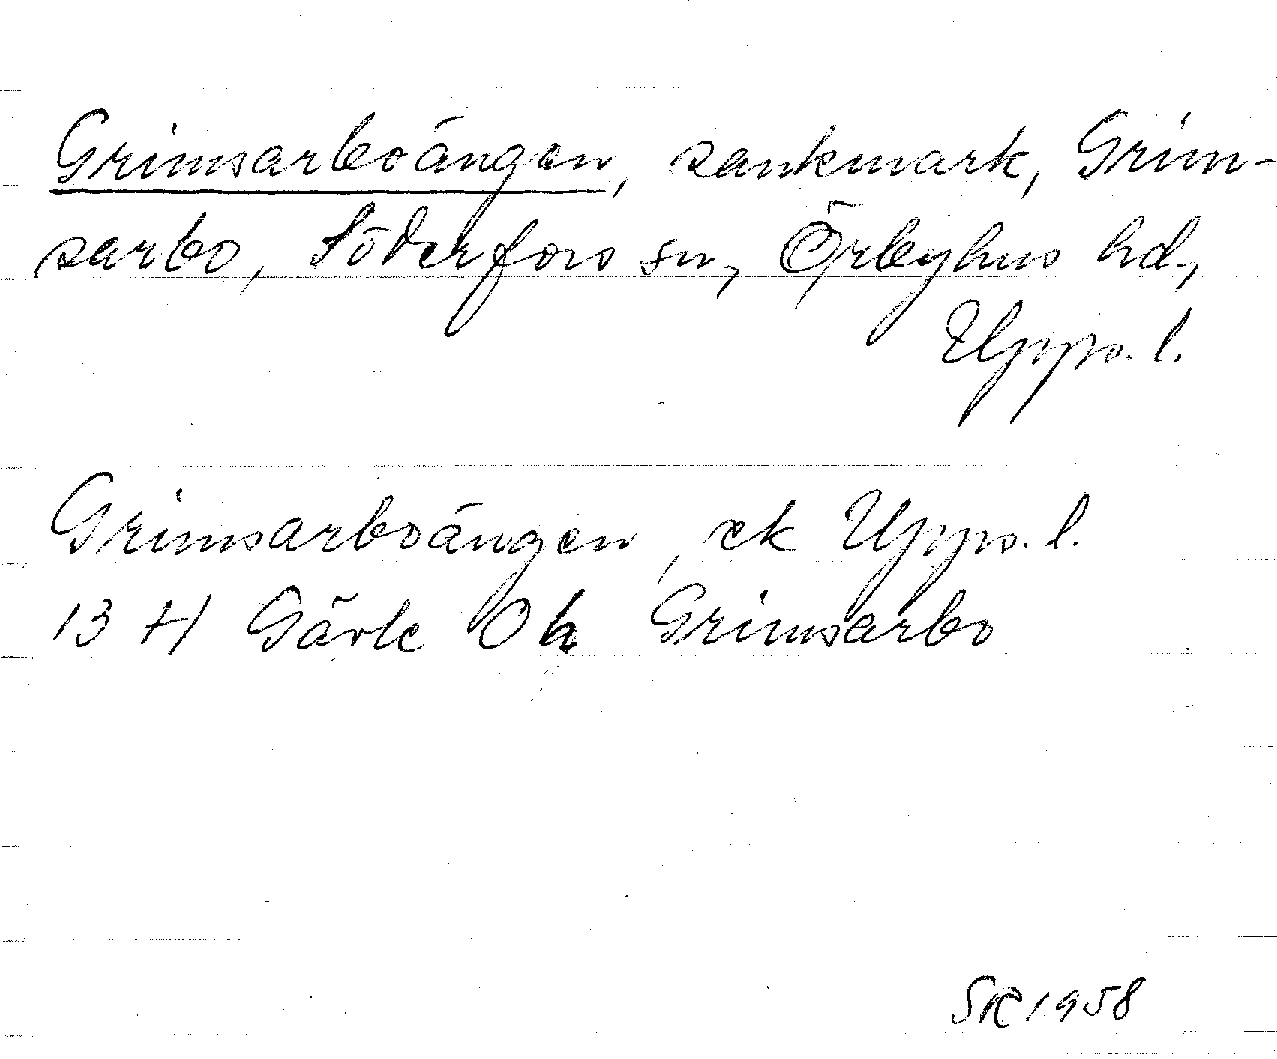 Grimsarboängen, sankmark, Grim-
sarbo, Söderfors sn, Örbyhus hd,
Upps. l.
Grimsarboängen, ek Upps. l.
13 H Gävle Grimsarbo
SR 1958